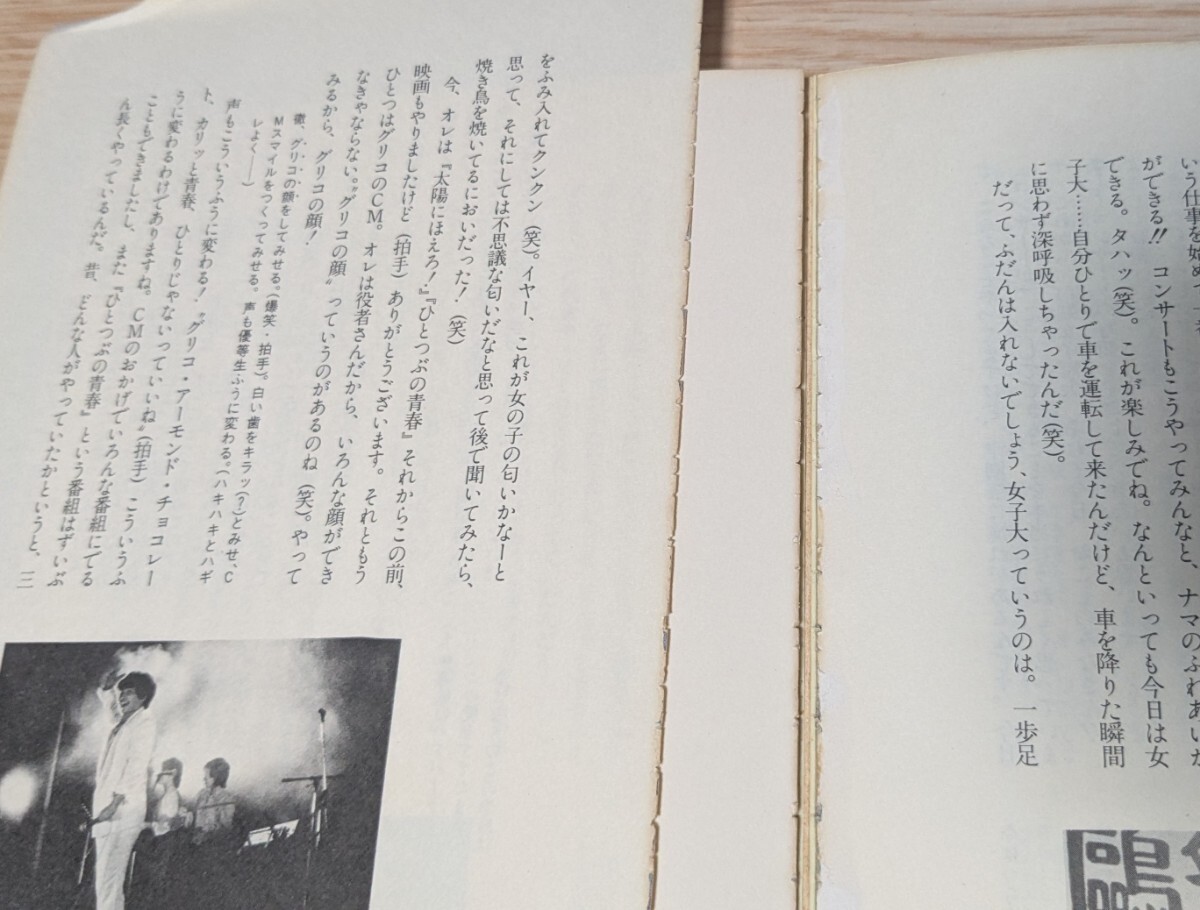 いう仕事を始めて
ができる!! コンサートもこうやってみんなと、ナマのふれあいが
できる。タハッ(笑)。これが楽しみでね。なんといっても今日は女
子大……自分ひとりで車を運転して来たんだけど、車を降りた瞬間
に思わず深呼吸しちゃったんだ(笑)。
だって、ふだんは入れないでしょう、女子大っていうのは。一歩足
をふみ入れてクンクン(笑)。イヤー、これが女の子の匂いかなーと
思って、それにしては不思議な匂いだなと思って後で聞いてみたら、
焼き鳥を焼いてるにおいだった!(笑)
今、オレは『太陽にほえろ!』『ひとつぶの青春』それからこの前、
映画もやりましたけど(拍手)ありがとうございます。それともう
ひとつはグリコのCM。オレは役者さんだから、いろんな顔ができ
なきゃならない。〝グリコの顔〟っていうのがあるのね(笑)。やって
みるから、グリコの顔!
徹、グリコの顔をしてみせる。(爆笑・拍手)。白い歯をキラッ(?)とみせ、C
Mスマイルをつくってみせる。声も優等生ふうに変わる。(ハキハキとハギ
レよく――)
声もこういうふうに変わる!〝グリコ・アーモンド・チョコレー
ト、カリッと青春、ひとりじゃないっていいね〟(拍手)こういうふ
うに変わるわけでありますね。CMのおかげでいろんな番組にでる
こともできましたし、また『ひとつぶの青春』という番組はずいぶ
ん長くやっているんだ。昔、どんな人がやっていたかというと、三
鴎